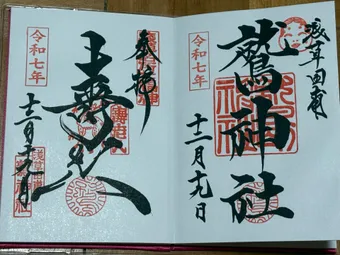 浅草田甫
鷲神社
令和七年
十二月十九日
奉拝
壽老人
令和七年
十二月十九日